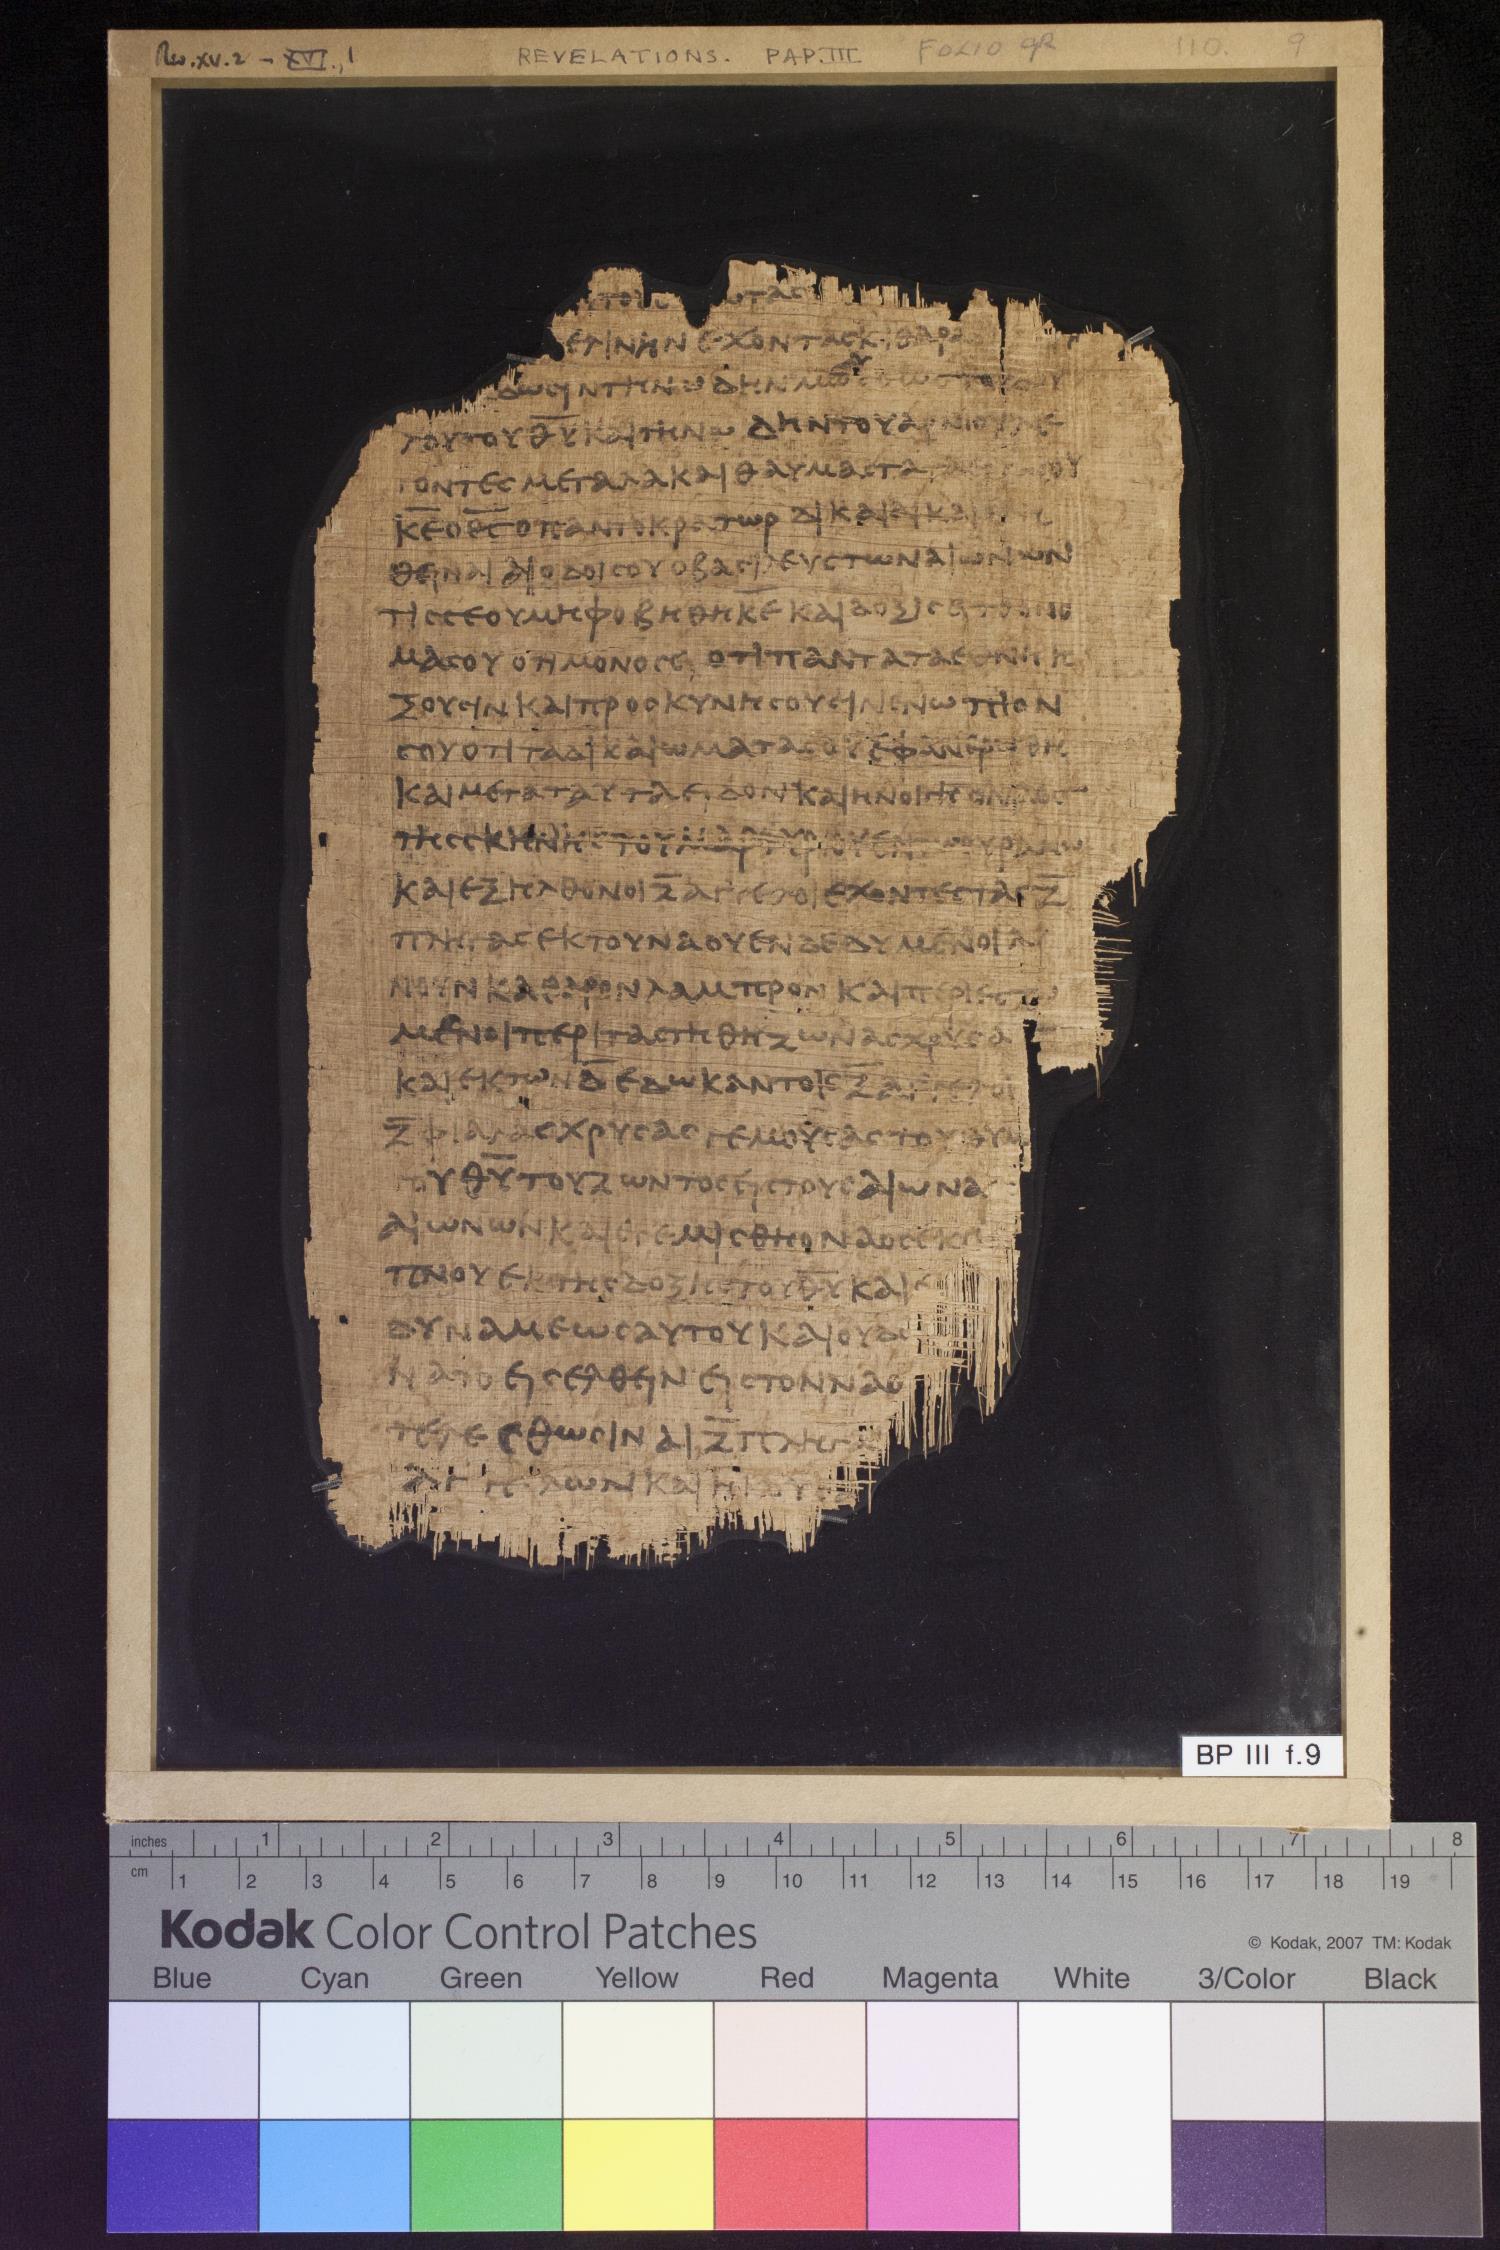 Rev. XV. 2 – XVI., 1 REVELATIONS. PAP. III FOLIO 9R 110. 9
ΕΤΙΝΗΝ ΕΧΟΝΤΑΣ ΚΙΘΑΡΑ
ΔΟΥ
ΤΟΥ ΤΟΥ Θ̅Υ̅ ΚΑΙ ΤΗΝ ΩΔΗΝ ΤΟΥ ΑΡΝΙΟΥ ΛΕ
ΓΟΝΤΕΣ ΜΕΓΑΛΑ ΚΑΙ ΘΑΥΜΑΣΤΑ
Κ̅Ε̅ Ο Θ̅Σ̅ Ο ΠΑΝΤΟΚΡΑΤΩΡ ΔΙΚΑΙΑΙ ΚΑΙ
ΘΕΙΝΑΙ ΑΙ ΟΔΟΙ ΣΟΥ Ο ΒΑΣΙΛΕΥΣ ΤΩΝ ΑΙΩΝΩΝ
ΤΙΣ ΣΕ ΟΥ ΜΗ ΦΟΒΗΘΗ Κ̅Ε̅ ΚΑΙ ΔΟΞΙΣΕΙ ΤΟ ΟΝΟ
ΜΑ ΣΟΥ ΟΤΙ ΜΟΝΟΣ ΟΤΙ ΠΑΝΤΑ ΤΑ ΕΘΝΗ Η
ΞΟΥΣΙΝ ΚΑΙ ΠΡΟΣΚΥΝΗΣΟΥΣΙΝ ΕΝΩΠΙΟΝ
ΣΟΥ ΟΤΙ ΤΑ ΔΙΚΑΙΩΜΑΤΑ ΣΟΥ ΕΦΑΝΕΡΩΘΗ
ΚΑΙ ΜΕΤΑ ΤΑΥΤΑ ΕΙΔΟΝ ΚΑΙ ΗΝΟΙΓΗ Ο ΝΑΟΣ
ΤΗΣ ΣΚΗΝΗΣ ΤΟΥ ΜΑΡΤΥΡΙΟΥ ΕΝ ΤΩ ΟΥΡΑΝΩ
ΚΑΙ ΕΞΗΛΘΟΝ ΟΙ Ζ̅ ΑΓΓΕΛΟΙ ΕΧΟΝΤΕΣ ΤΑΣ Ζ̅
ΠΛΗΓΑΣ ΕΚ ΤΟΥ ΝΑΟΥ ΕΝΔΕΔΥΜΕΝΟΙ ΛΙ
ΝΟΥΝ ΚΑΘΑΡΟΝ ΛΑΜΠΡΟΝ ΚΑΙ ΠΕΡΙΕΖΩ
ΜΕΝΟΙ ΠΕΡΙ ΤΑ ΣΤΗΘΗ ΖΩΝΑΣ ΧΡΥΣΑ
ΚΑΙ ΕΚ ΤΩΝ Δ̅ ΕΔΩΚΑΝ ΤΟΙΣ Ζ̅ ΑΓΓΕΛΟΙ
Ζ̅ ΦΙΑΛΑΣ ΧΡΥΣΑΣ ΓΕΜΟΥΣΑΣ ΤΟΥ ΘΥΜ
ΤΟΥ Θ̅Υ̅ ΤΟΥ ΖΩΝΤΟΣ ΕΙΣ ΤΟΥΣ ΑΙΩΝΑΣ
ΑΙΩΝΩΝ ΚΑΙ ΕΓΕΜΙΣΘΗ Ο ΝΑΟΣ ΕΚ
ΠΝΟΥ ΕΚ ΤΗΣ ΔΟΞΗΣ ΤΟΥ Θ̅Υ̅ ΚΑΙ Ε
ΔΥΝΑΜΕΩΣ ΑΥΤΟΥ ΚΑΙ ΟΥΔ
ΝΑΤΟ ΕΙΣΕΛΘΕΙΝ ΕΙΣ ΤΟΝ ΝΑΟ
ΤΕΛΕΣΘΩΣΙΝ ΑΙ Ζ̅ ΠΛΗΓΑ
ΑΓΓΕΛΩΝ ΚΑΙ ΗΚΟΥΣΑ
BP III f.9
inches 1 2 3 4 5 6 7 8
cm 1 2 3 4 5 6 7 8 9 10 11 12 13 14 15 16 17 18 19
Kodak Color Control Patches
© Kodak, 2007 TM: Kodak
Blue Cyan Green Yellow Red Magenta White 3/Color Black